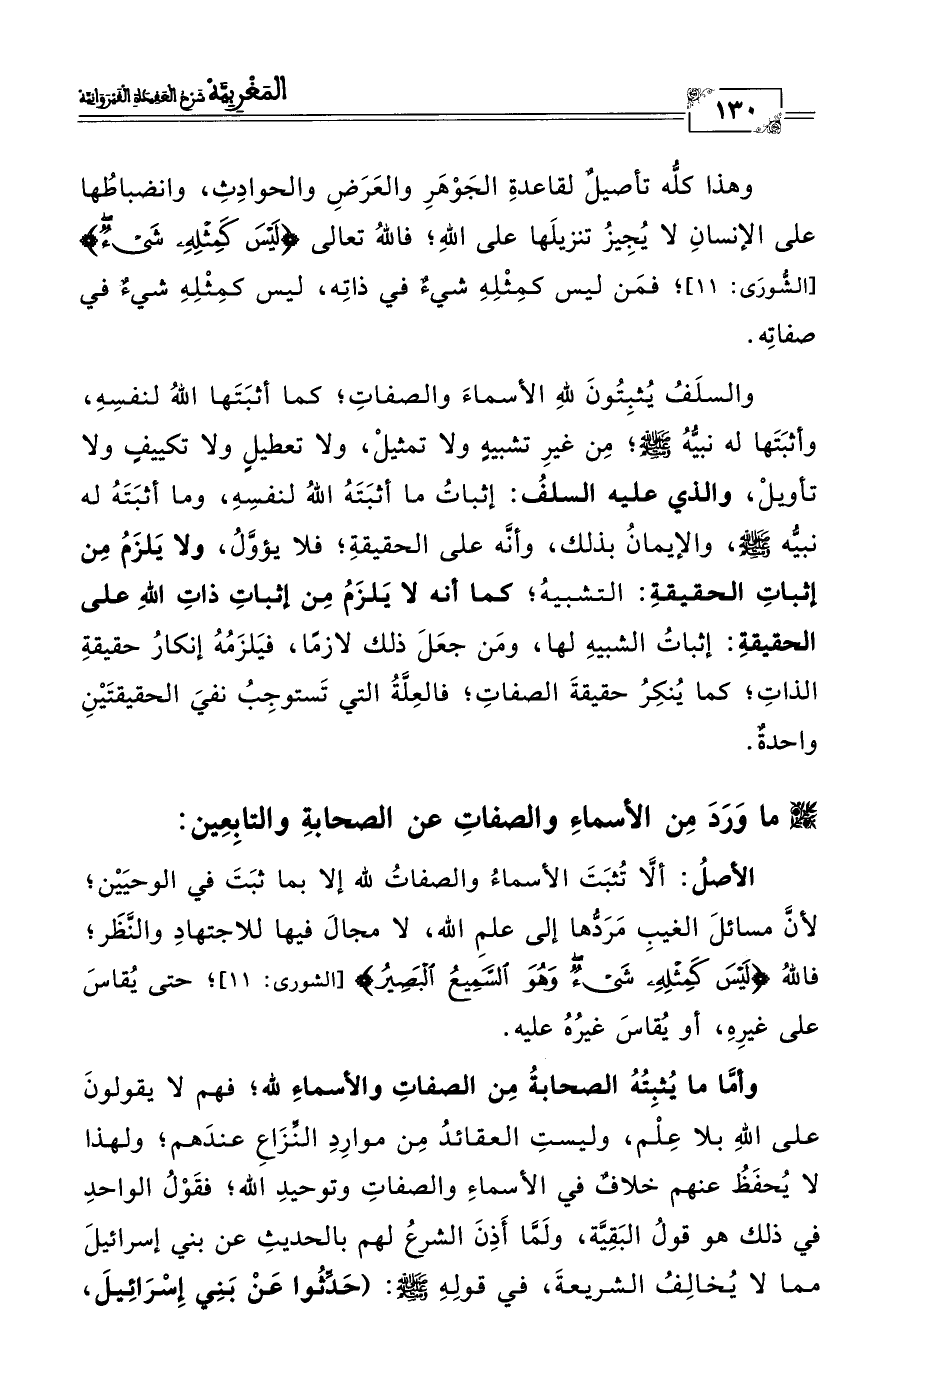 المَغْرِبيَّة شَرْحُ العَقِيدَةِ القَيْرَوَانِيَّة
١٣٠
وهذا كلُّه تأصيلٌ لقاعدةِ الجَوْهَرِ والعَرَضِ والحوادِثِ، وانضباطُها
على الإنسانِ لا يُجِيزُ تنزيلَها على اللهِ؛ فاللهُ تعالى ﴿لَيْسَ كَمِثْلِهِۦ شَىْءٌۖ﴾
[الشُّورَى: ١١]؛ فمَن ليس كمِثْلِهِ شيءٌ في ذاتِه، ليس كمِثْلِهِ شيءٌ في
صفاتِه.
والسلَفُ يُثبِتُونَ للهِ الأسماءَ والصفاتِ؛ كما أثبَتَها اللهُ لنفسِهِ،
وأثبَتَها له نبيُّهُ ﷺ؛ مِن غيرِ تشبيهٍ ولا تمثيلْ، ولا تعطيلٍ ولا تكييفٍ ولا
تأويلْ، والذي عليه السلفُ: إثباتُ ما أثبَتَهُ اللهُ لنفسِهِ، وما أثبَتَهُ له
نبيُّه ﷺ، والإيمانُ بذلك، وأنَّه على الحقيقةِ؛ فلا يؤوَّلُ، ولا يَلزَمُ مِن
إثباتِ الحقيقةِ: التشبيهُ؛ كما أنه لا يَلزَمُ مِن إثباتِ ذاتِ اللهِ على
الحقيقةِ: إثباتُ الشبيهِ لها، ومَن جعَلَ ذلك لازمًا، فيَلزَمُهُ إنكارُ حقيقةِ
الذاتِ؛ كما يُنكِرُ حقيقةَ الصفاتِ؛ فالعِلَّةُ التي تَستوجِبُ نفيَ الحقيقتَيْنِ
واحدةٌ.
ما وَرَدَ مِن الأسماءِ والصفاتِ عن الصحابةِ والتابِعِين:
الأصلُ: ألَّا تُثبَتَ الأسماءُ والصفاتُ لله إلا بما ثبَتَ في الوحيَيْن؛
لأنَّ مسائلَ الغيبِ مَرَدُّها إلى علمِ الله، لا مجالَ فيها للاجتهادِ والنَّظَر؛
فاللهُ ﴿لَيْسَ كَمِثْلِهِۦ شَىْءٌۖ وَهُوَ ٱلسَّمِيعُ ٱلْبَصِيرُ﴾ [الشورى: ١١]؛ حتى يُقاسَ
على غيرِهِ، أو يُقاسَ غيرُهُ عليه.
وأمَّا ما يُثبِتُهُ الصحابةُ مِن الصفاتِ والأسماءِ لله؛ فهم لا يقولونَ
على اللهِ بلا عِلْم، وليستِ العقائدُ مِن موارِدِ النِّزَاعِ عندَهم؛ ولهذا
لا يُحفَظُ عنهم خلافٌ في الأسماءِ والصفاتِ وتوحيدِ الله؛ فقَوْلُ الواحدِ
في ذلك هو قولُ البَقِيَّة، ولَمَّا أَذِنَ الشرعُ لهم بالحديثِ عن بني إسرائيلَ
مما لا يُخالِفُ الشريعةَ، في قولِهِ ﷺ: (حَدِّثُوا عَنْ بَنِي إِسْرَائِيلَ،